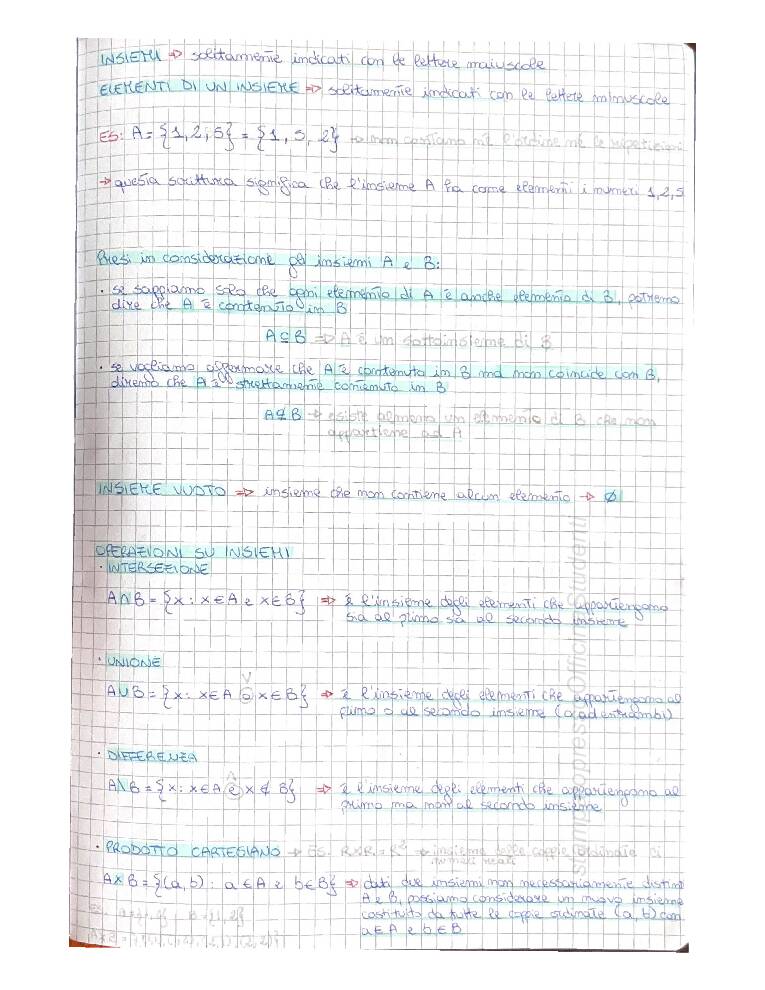 INSIEMI ⇒ solitamente indicati con le lettere maiuscole
ELEMENTI DI UN INSIEME ⇒ solitamente indicati con le lettere minuscole
ES: A = {1, 2, 5} = {1, 5, 2} → non contano né l'ordine né le ripetizioni
→ questa scrittura significa che l'insieme A ha come elementi i numeri 1, 2, 5
Presi in considerazione gli insiemi A e B:
• se sappiamo solo che ogni elemento di A è anche elemento di B, potremo
dire che A è contenuto in B
A ⊆ B ⇒ A è un sottoinsieme di B
• se vogliamo affermare che A è contenuto in B ma non coincide con B,
diremo che A è strettamente contenuto in B
A ⊊ B → esiste almeno un elemento di B che non
appartiene ad A
INSIEME VUOTO ⇒ insieme che non contiene alcun elemento → ∅
OPERAZIONI SU INSIEMI
• INTERSEZIONE
A ∩ B = {x : x ∈ A e x ∈ B} ⇒ è l'insieme degli elementi che appartengono
sia al primo sia al secondo insieme
• UNIONE
V
A ∪ B = {x : x ∈ A o x ∈ B} ⇒ è l'insieme degli elementi che appartengono al
primo o al secondo insieme (o ad entrambi)
• DIFFERENZA
Λ
A \ B = {x : x ∈ A e x ∉ B} ⇒ è l'insieme degli elementi che appartengono al
primo ma non al secondo insieme
• PRODOTTO CARTESIANO → ES. R×R = R² → insieme delle coppie ordinate di
numeri reali
A×B = {(a, b) : a ∈ A e b ∈ B} ⇒ dati due insiemi non necessariamente distinti
A e B, possiamo considerare un nuovo insieme
costituito da tutte le coppie ordinate (a, b) con
a ∈ A e b ∈ B
B = {1, 2}
A×B =